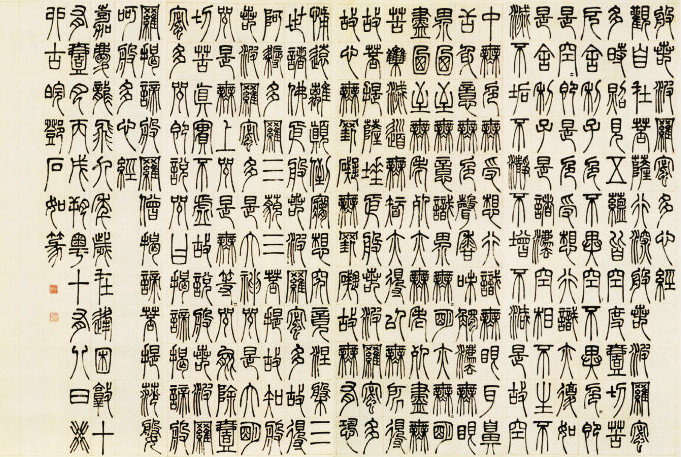 般若波羅蜜多心經
觀自在菩薩行深般若波羅蜜
多時照見五蘊皆空度一切苦
厄舍利子色不異空空不異色色即
是空空即是色受想行識亦復如
是舍利子是諸法空相不生不
滅不垢不淨不增不減是故空
中無色無受想行識無眼耳鼻
舌身意無色聲香味觸法無眼
界乃至無意識界無無明亦無無明
盡乃至無老死亦無老死盡無
苦集滅道無智亦得以無所得
故菩提薩埵依般若波羅蜜多
故心無罣礙無罣礙故無有恐
怖遠離顛倒夢想究竟涅槃三
世諸佛依般若波羅蜜多故得
阿耨多羅三藐三菩提故知般
若波羅蜜多是大神咒是大明
咒是無上咒是無等等咒能除一
切苦真實不虛故說般若波羅
蜜多咒即說咒曰揭諦揭諦般
羅揭諦般羅僧揭諦菩提莎般
呵般多心經
嘉慶龍飛九年歲在逢困敦十
有一月丙戌朔粵十有八日癸
卯古皖鄧石如篆